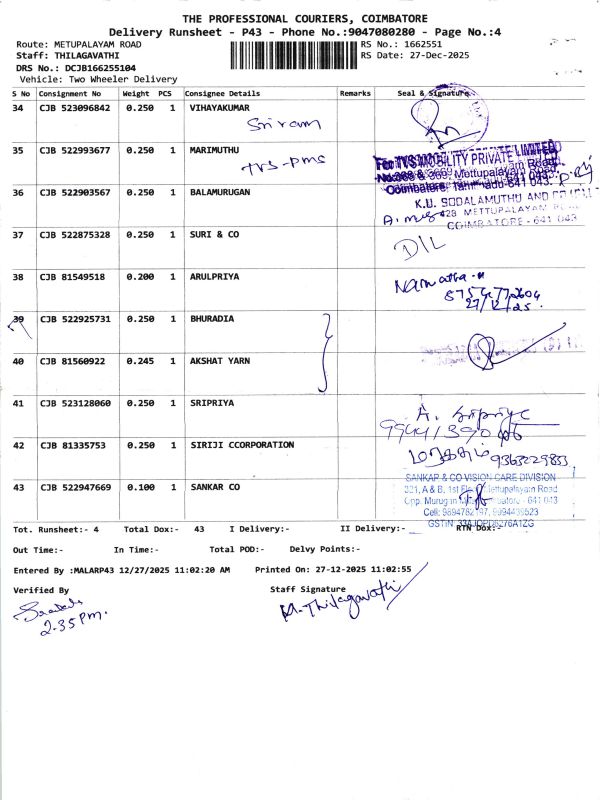 THE PROFESSIONAL COURIERS, COIMBATORE
Delivery Runsheet - P43 - Phone No.:9047080280 - Page No.:4
Route: METUPALAYAM ROAD RS No.: 1662551
Staff: THILAGAVATHI RS Date: 27-Dec-2025
DRS No.: DCJB166255104
Vehicle: Two Wheeler Delivery
S No Consignment No Weight PCS Consignee Details Remarks Seal & Signature
34 CJB 523096842 0.250 1 VIHAYAKUMAR
Sriram
35 CJB 522993677 0.250 1 MARIMUTHU
TVS-PMS
For TVS MOBILITY PRIVATE LIMITED
Mettupalayam Road,
Coimbatore, Tamilnadu-641 043.
36 CJB 522903567 0.250 1 BALAMURUGAN
K.U. SODALAMUTHU AND
428 METTUPALAYAM
COIMBATORE - 641 043
37 CJB 522875328 0.250 1 SURI & CO
D/L
38 CJB 81549518 0.200 1 ARULPRIYA
27/12/25.
39 CJB 522925731 0.250 1 BHURADIA
40 CJB 81560922 0.245 1 AKSHAT YARN
41 CJB 523128060 0.250 1 SRIPRIYA
A. Sripriya
42 CJB 81335753 0.250 1 SIRIJI CCORPORATION
9363229833
43 CJB 522947669 0.100 1 SANKAR CO
SANKAR & CO VISION CARE DIVISION
321, A & B, 1st Floor, Mettupalayam Road
Opp. Murugan
GSTIN
Tot. Runsheet:- 4 Total Dox:- 43 I Delivery:- II Delivery:- RTN Dox:-
Out Time:- In Time:- Total POD:- Delvy Points:-
Entered By :MALARP43 12/27/2025 11:02:20 AM Printed On: 27-12-2025 11:02:55
Verified By Staff Signature
2.35 pm. M. Thilagavathi